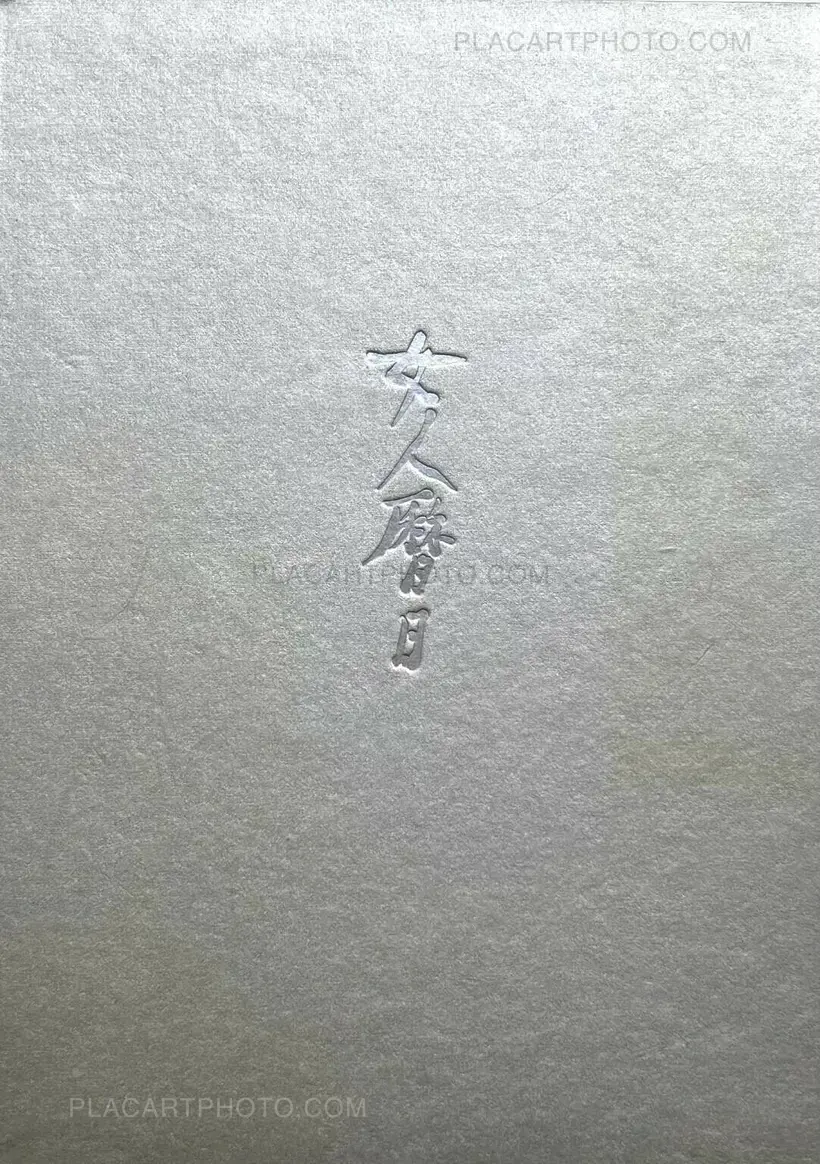 PLACARTPHOTO.COM
女人暦日
PLACARTPHOTO.COM
PLACARTPHOTO.COM